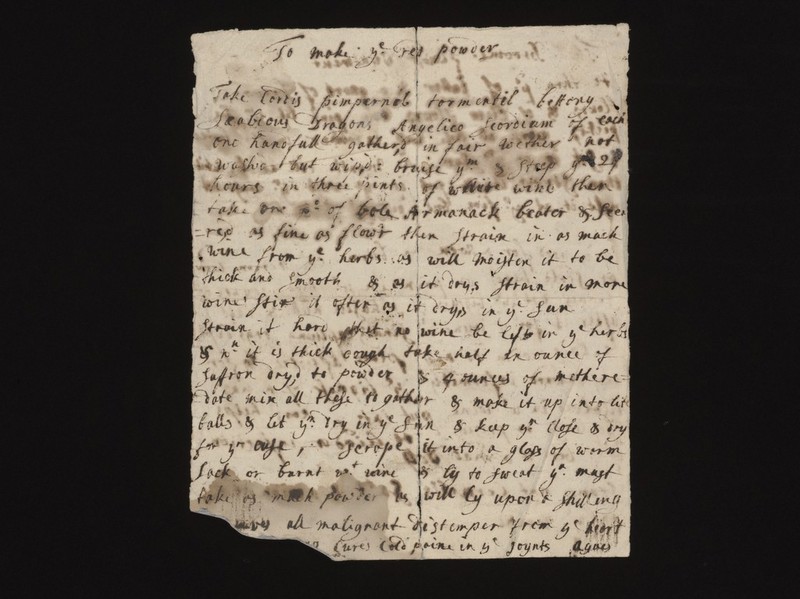 To make ye red powder
Take Cordis pimpernel tormentil bettony
Scabious Dragons Angelico Scordium of each
one handfull gatherd in fair wether not
washd but wipd bruise ym & Steep ym 24
hours in three pints of white wine then
take one pd of bole Armanack beaten & Seer
=red as fine as flowr then Strain in as much
wine from ye herbs as will moisten it to be
thick and smooth & as it drys strain in more
wine Stir it often as it drys in ye Sun
Strain it hard that no wine be left in ye herbs
& wn it is thick enough take half an ounce of
saffron dryd to powder & 4 ounces of methere=
date mix all these togather & make it up into lit
balls & let ym Dry in ye Sun & keep ym Close & dry
for yr use, scrape it into a glass of worm
Sack or burnt wt wine & ly to sweat yn must
take as much powder as will ly upon a shilling
drives all malignant distemper from ye heart
Cures Cold paine in ye Joynts Agues